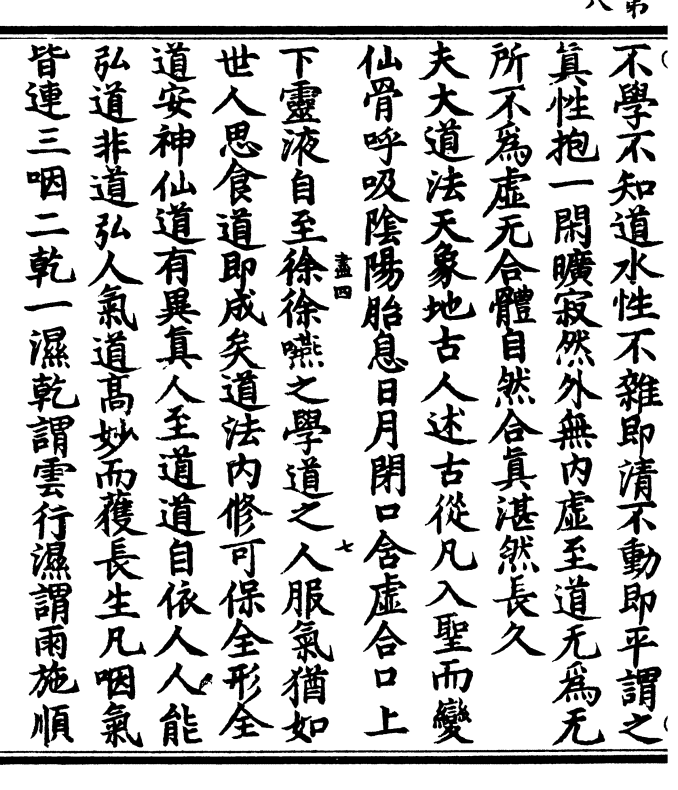 不學不知道水性不雜即清不動即平謂之
眞性抱一閑曠寂然外無内虛至道无爲无
所不爲虛无合體自然合眞湛然長久
夫大道法天象地古人述古從凡入聖而變
仙骨呼吸陰陽胎息日月閉口含虛合口上
盡四
七
下靈液自至徐徐嚥之學道之人服氣猶如
世人思食道即成矣道法内修可保全形全
道安神仙道有異真人至道道自依人人能
弘道非道弘人氣道高妙而獲長生凡咽氣
皆連三咽二乾一濕乾謂雲行濕謂雨施順